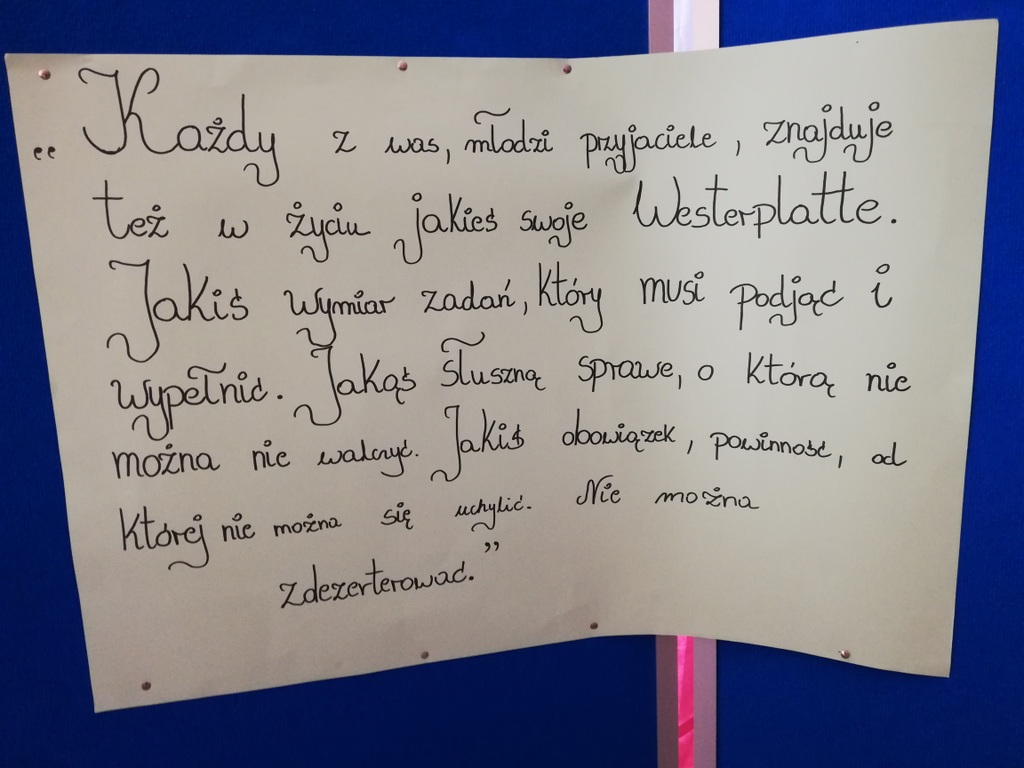 „Każdy z was, młodzi przyjaciele, znajduje
też w życiu jakieś swoje Westerplatte.
Jakiś wymiar zadań, który musi podjąć i
wypełnić. Jakąś słuszną sprawe, o którą nie
można nie walczyć. Jakiś obowiązek, powinność, od
której nie można się uchylić. Nie można
zdezerterować.”